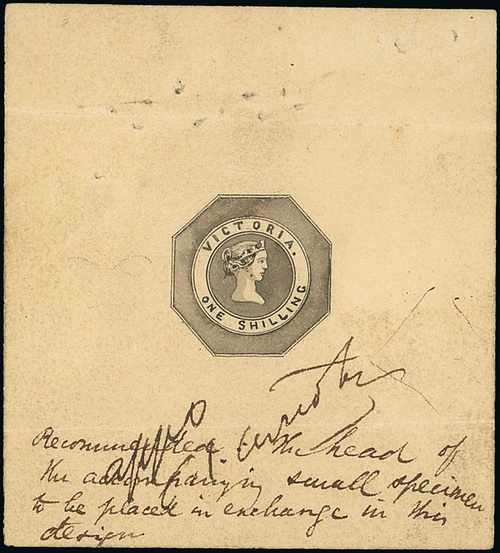 VICTORIA.
ONE SHILLING
Recommended. The head of
the accompanying small specimen
to be placed in exchange in this
design